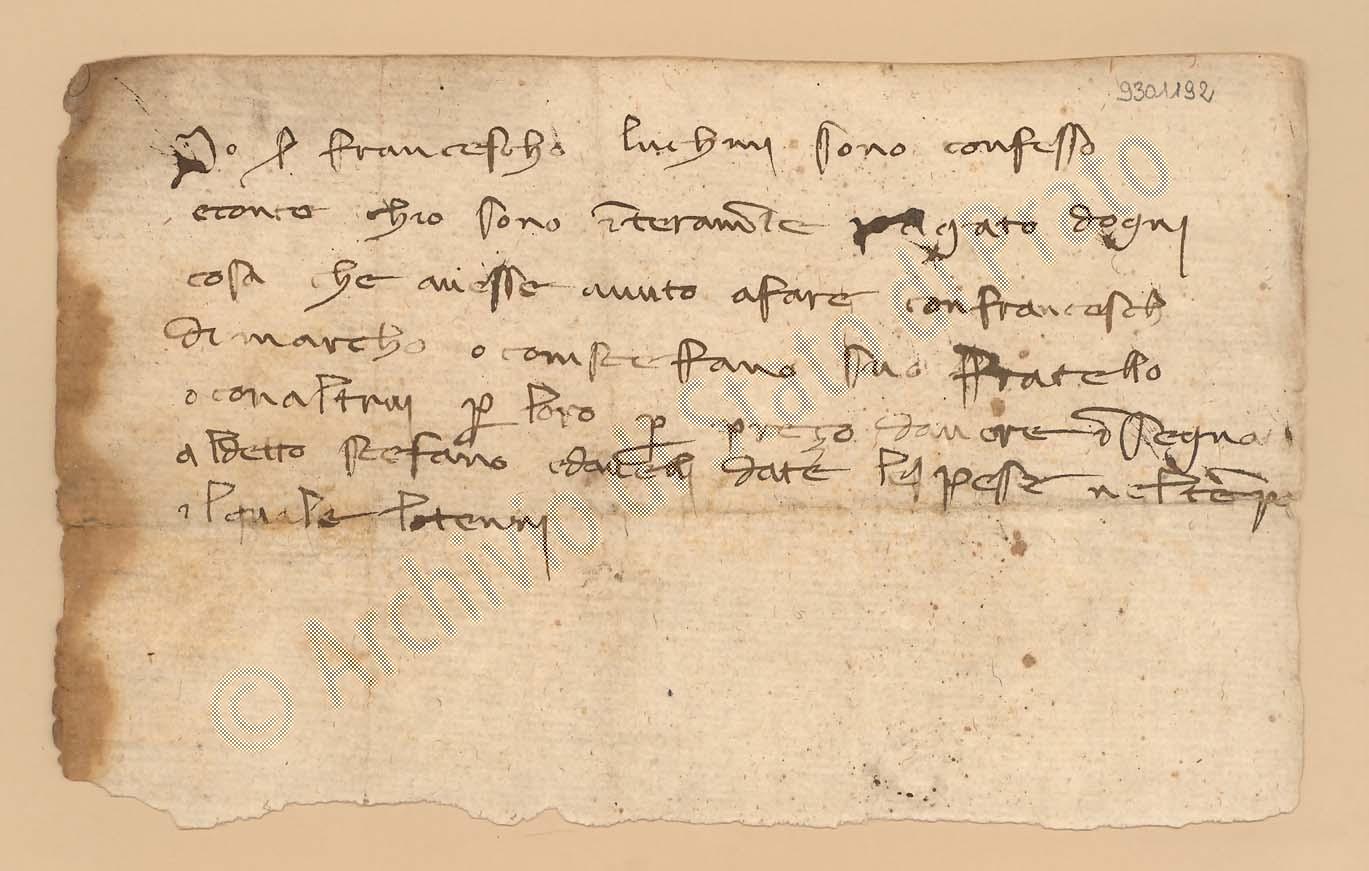 9301192
Io s francescho luchini sono confesso
e conto chio sono interamte pagato dogni
cosa che auesse auuto a fare con francesch
di marcho o com stefano suo fratello
o con altrui p loro p prezo dauere isegna
al detto stefano e dateli le spesse nel tēp
il quale lo tenni
© Archivio di Stato di Prato